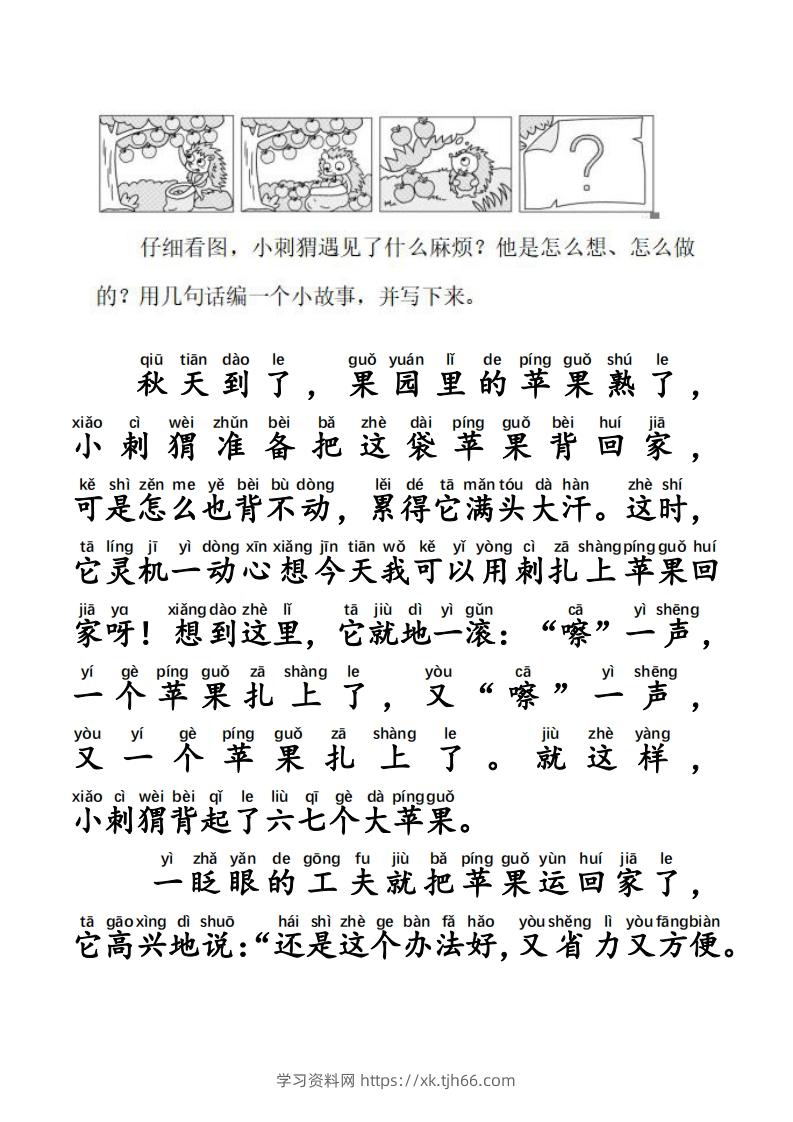 ?
仔细看图，小刺猬遇见了什么麻烦？他是怎么想、怎么做
的？用几句话编一个小故事，并写下来。
qiū tiān dào le guǒ yuán lǐ de píng guǒ shú le
秋天到了，果园里的苹果熟了，
xiǎo cì wèi zhǔn bèi bǎ zhè dài píng guǒ bèi huí jiā
小刺猬准备把这袋苹果背回家，
kě shì zěn me yě bèi bù dòng lěi dé tā mǎn tóu dà hàn zhè shí
可是怎么也背不动，累得它满头大汗。这时，
tā líng jī yì dòng xīn xiǎng jīn tiān wǒ kě yǐ yòng cì zā shàng píng guǒ huí
它灵机一动心想今天我可以用刺扎上苹果回
jiā yɑ xiǎng dào zhè lǐ tā jiù dì yì gǔn cā yì shēng
家呀！想到这里，它就地一滚：“嚓”一声，
yí gè píng guǒ zā shàng le yòu cā yì shēng
一个苹果扎上了，又“嚓”一声，
yòu yí gè píng guǒ zā shàng le jiù zhè yàng
又一个苹果扎上了。就这样，
xiǎo cì wèi bèi qǐ le liù qī gè dà píng guǒ
小刺猬背起了六七个大苹果。
yì zhǎ yǎn de gōng fu jiù bǎ píng guǒ yùn huí jiā le
一眨眼的工夫就把苹果运回家了，
tā gāo xìng dì shuō hái shì zhè ge bàn fǎ hǎo yòu shěng lì yòu fāng biàn
它高兴地说：“还是这个办法好，又省力又方便。
学习资料网 https://xk.tjh66.com